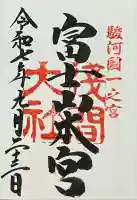 駿河國一之宮
富士山本宮
浅間大社
令和七年九月二十二日